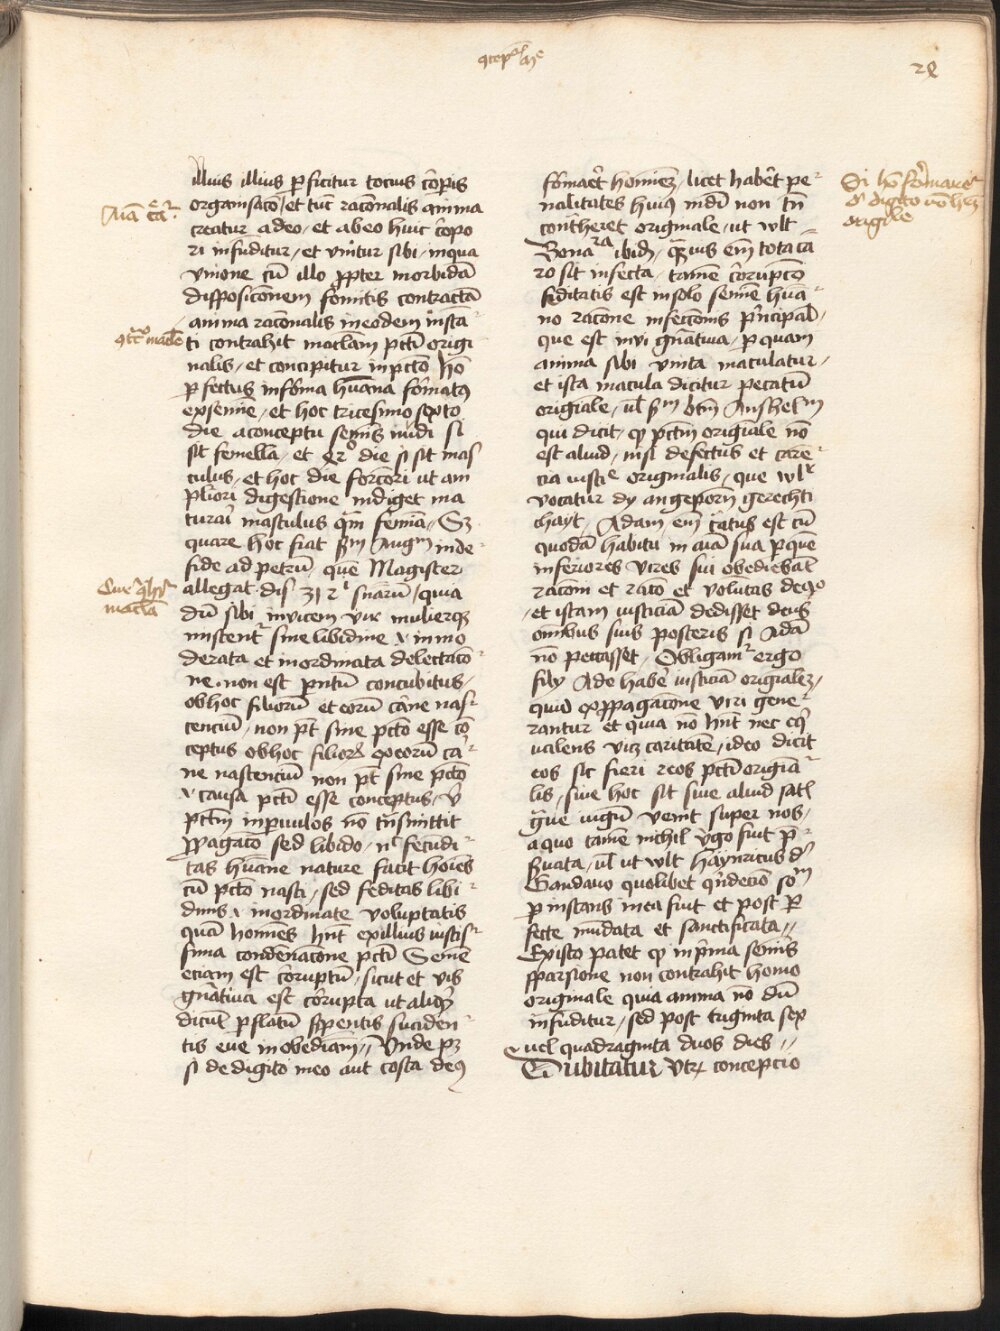 illius illius ꝑficitur tocius corꝑis
organisacō / et tūc racōnalis anima
creatur a deo / et ab eo huic corpo
ri infūditur / et vnitur sibi / inqua
vnione cū illo ꝓpter morbidā
disposicōnem fomitis contractā
anima racōnalis in eodem insta
ti contrahit maclam pctī origi
nalis / et concipitur in pctō / hō
ꝑfectus in forma hūana formatꝰ
ex semine / et hoc tricesimo sexto
die a conceptu seminis mūdi si
sit femella / et 42º die si sit mas
culus / et hoc die forciori ut am
pliori digestione indiget ma
turari masculus qm̄ femia // Sꝫ
quare hoc fiat scdm Augm in de
fide ad petrū / que Magister
allegat dis 31 2i sniarū / quia
dū sibi invicem vir mulierqꝫ
miscentur sine libidine v inmo
derata et inordinata delectacō
ne / non est parentū concubitus /
ob hoc filiorū et eorū carne nas
cenciū / non pt sine pctō esse cō
ceptus ob hoc filiorum ex eorū ca
ne nascenciū non pt sine pctō
v causa pctī esse conceptus / v
pctm in parvulos nō trāsmittit
ꝓpagacō sed libido / nec fecūdi
tas hūane nature facit hoīes
cū pctō nasci / sed feditas libi
dinis v inordinate voluptatis
quā homines hnt ex illius iustis
sima condēnacōne pctī Semē
eciam est corruptū / sicut et vis
gnatiua est corrupta ut aliqui
dicūt ꝑ flatū serpentis suaden
tis eue inobediam // Vnde pꝫ
si de digito meo aut costa deꝰ
formaret hominē / licet haberet pe
nalitates huiꝰ mūdi non tn
contraheret originale / ut wlt
Bonara ibid / quīuis em tota ca
ro sit infecta / tamen corrupcō
feditatis est in solo semīe hūa
no racōne infeccōnis principal
que est in vi gnatiua / ꝑ quam
anima sibi vnita maculatur /
et ista macula dicitur pecatū
originale / ul scdm btm Anshelm
qui dicit / qꝫ pctm originale nō
est aliud / nisi defectus et care
cia iusticie originalis / que wlr
vocatur dy angeporn gerechti
chayt / Adam em creatus est cū
quodā habitu in aīa sua ꝑ quē
inferiores vires sui obediebāt
racōni et racō et volūtas deo
et istam iusticiā dedisset deus
omībus suis posteris si Adā
nō peccasset / Obligamur ergo
filij Ade habere iusticiā originalē /
quia ex ꝓpagacōne viri gene
rantur et quia nō hnt nec eqi
ualens viꝫ caritatē / ideo dicit
eos sic fieri reos pctī origina
lis / siue hoc sit siue aliud
venit super nos /
a quo tamē nichil virgo fuit p
seruata / ul ut wlt Haynricus de
Gandauo quolibet qndecio
ꝑ instans in ea fuit et post ꝑ
fecte mūdata et sanctificata //
Ex isto patet qꝫ in prima seminis
sparsione non contrahit homo
originale quia anima nō dū
infūditur / sed post triginta sex
vel quadraginta duos dies //
Dubitatur vtrū concepcio